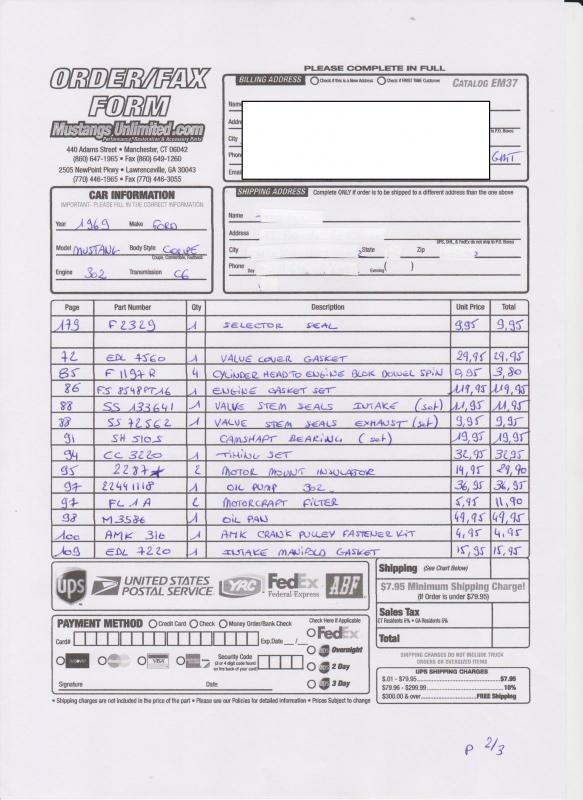 ORDER/FAX
FORM
Mustangs Unlimited.com
Performance, Restoration & Accessory Parts
440 Adams Street • Manchester, CT 06042
(860) 647-1965 • Fax (860) 649-1260
2505 NewPoint Pkwy • Lawrenceville, GA 30043
(770) 446-1965 • Fax (770) 446-3055
PLEASE COMPLETE IN FULL
BILLING ADDRESS Check if this is a New Address Check if FIRST TIME Customer CATALOG EM37
Name
Addr
P.O. Boxes
City
Phon
Email
CAR INFORMATION
IMPORTANT- PLEASE FILL IN THE CORRECT INFORMATION
Year 1969 Make FORD
Model MUSTANG Body Style COUPE
Coupe, Convertible, Fastback
Engine 302 Transmission C6
SHIPPING ADDRESS Complete ONLY if order is to be shipped to a different address than the one above
Name
Address
UPS, DHL, & FedEx do not ship to P.O. Boxes
City State Zip
Phone Day Evening ( )
Page Part Number Qty Description Unit Price Total
179 F2329 1 SELECTOR SEAL 9,95 9,95
72 EDL 7560 1 VALVE COVER GASKET 29,95 29,95
85 F1197R 4 CYLINDER HEAD TO ENGINE BLOK DOWEL SPIN 0,95 3,80
86 FS 8548PT16 1 ENGINE GASKET SET 119,95 119,95
88 SS 133641 1 VALVE STEM SEALS INTAKE (set) 11,95 11,95
88 SS 72562 1 VALVE STEM SEALS EXHAUST (set) 9,95 9,95
91 SH 510S CAMSHAFT BEARING (set) 19,95 19,95
94 CC 3220 1 TIMING SET 32,95 32,95
95 2287 2 MOTOR MOUNT INSULATOR 14,95 29,90
97 22441118 1 OIL PUMP 302 36,95 36,95
97 FL 1A 2 MOTORCRAFT FILTER 5,95 11,90
98 M3586 1 OIL PAN 49,95 49,95
100 AMK 316 1 AMK CRANK PULLEY FASTENER KIT 4,95 4,95
109 EDL 7220 1 INTAKE MANIFOLD GASKET 15,95 15,95
ups UNITED STATES POSTAL SERVICE YRC FedEx Federal Express ABF
Shipping (See Chart Below)
$7.95 Minimum Shipping Charge!
(If Order is under $79.95)
Sales Tax
CT Residents 6% • GA Residents 6%
Total
PAYMENT METHOD Credit Card Check Money Order/Bank Check
Card# Exp.Date
VISA
Security Code
(3 or 4 digit code found on the back of your card)
Signature Date
Check Here if Applicable
FedEx
ups Overnight
ups 2 Day
ups 3 Day
SHIPPING CHARGES DO NOT INCLUDE TRUCK
ORDERS OR OVERSIZED ITEMS
UPS SHIPPING CHARGES
$.01 - $79.95 $7.95
$79.96 - $299.99 10%
$300.00 & over FREE Shipping
• Shipping charges are not included in the price of the part • Please see our Policies for detailed information • Prices Subject to Change
P 2/3